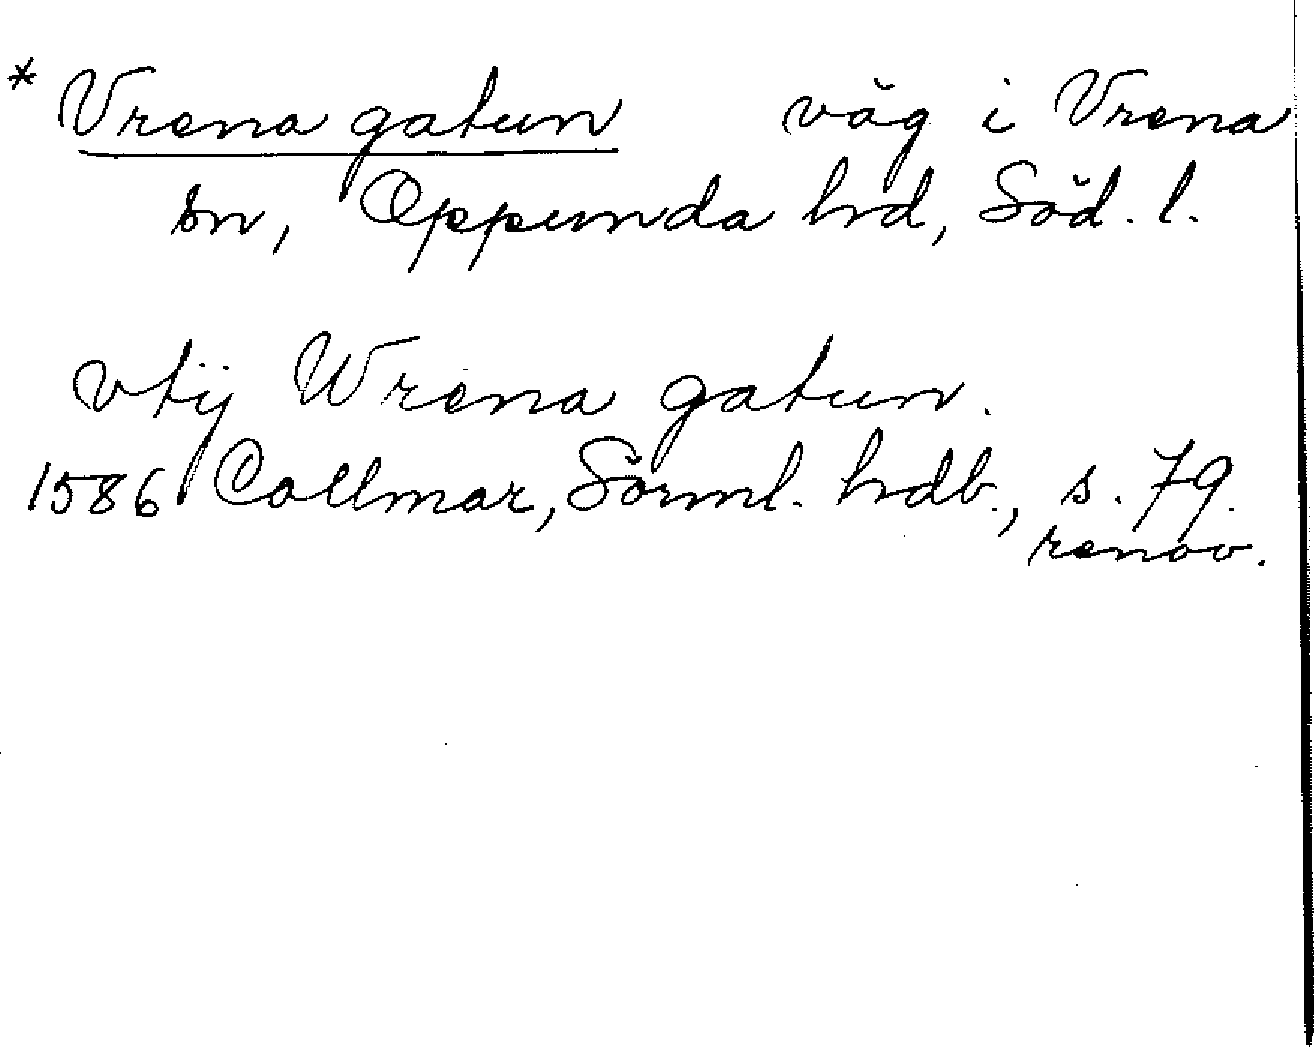 * Vrena gatun väg i Vrena
sn, Oppunda hd, Söd. l.
vtij Wrena gatun.
1586 Collmar, Sörml. hdb., s. 79.
renov.